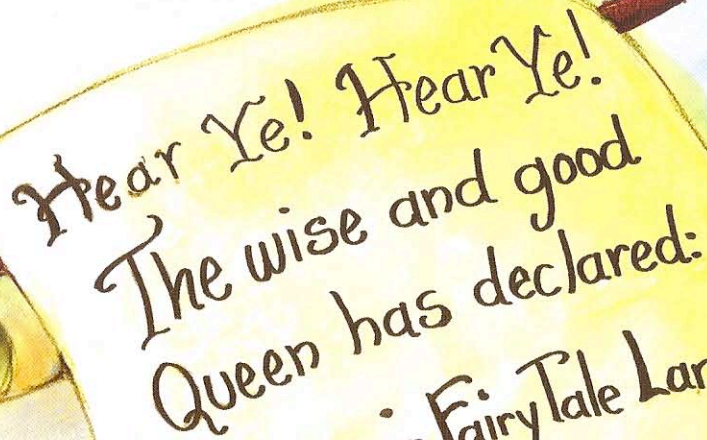 Hear Ye! Hear Ye!
The wise and good
Queen has declared:
Fairy Tale